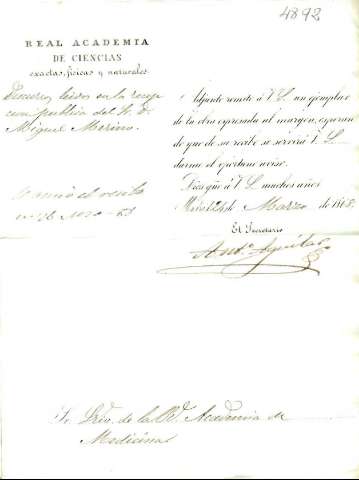 4892
REAL ACADEMIA
DE CIENCIAS
exactas, físicas y naturales
Discursos leidos en la recep
cion pública del Sr. D.
Miguel Merino.
Adjunto remito á V.S. un ejemplar
de la obra espresada al margen, esperan
do que de su recibo se servirá V.S.
darme el oportuno aviso.
Dios gue á V.S. muchos años
Madrid de Marzo de 1868.
El Secretario
Ant.º Aguilar
Sr. Srio. de la Rl. Academia de
Medicina